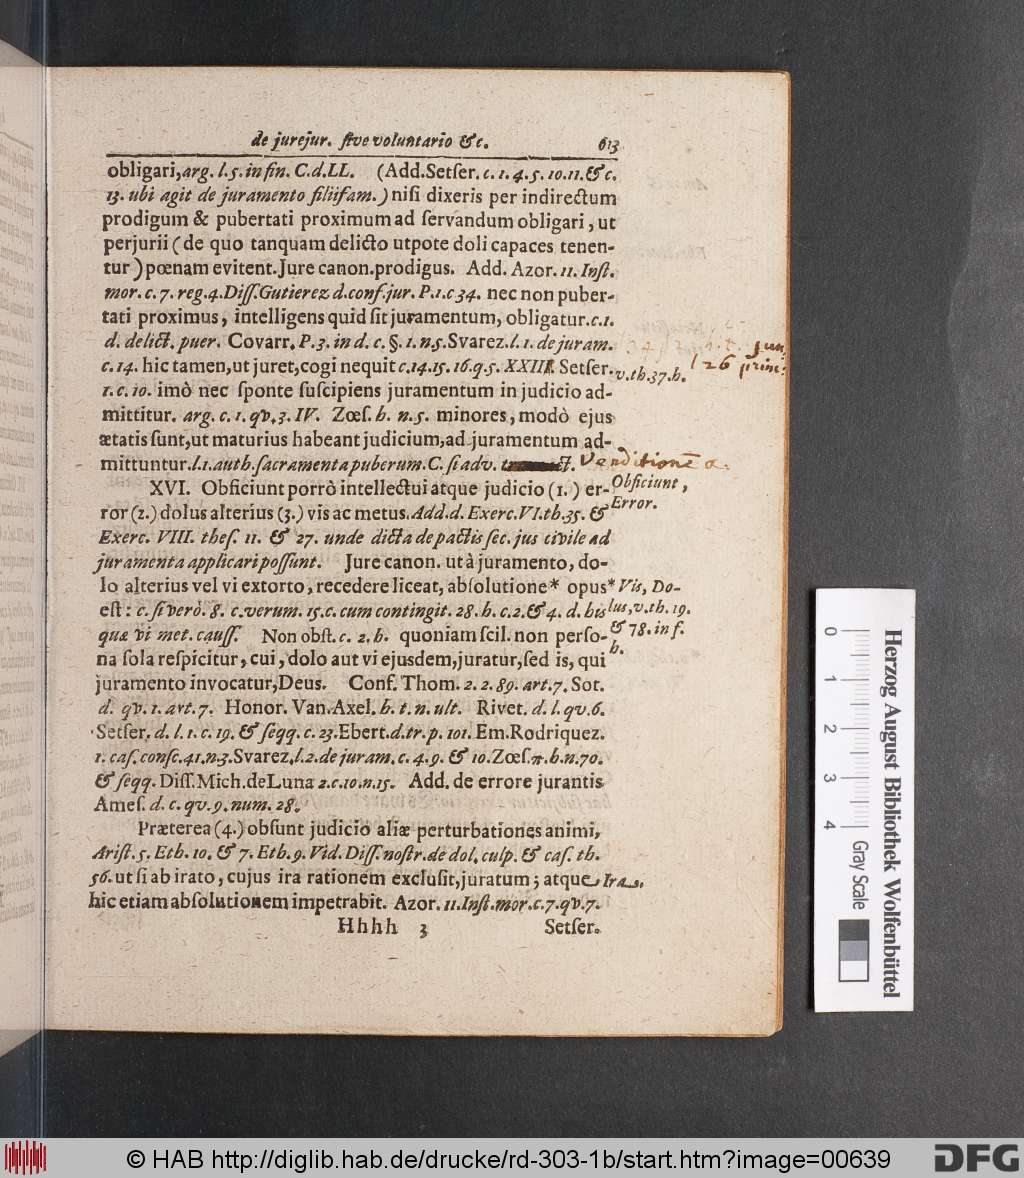 de jurejur. sive voluntario &c. 613
obligari, arg. l. 5. in fin. C. d. LL. (Add. Setser. c. 1. 4. 5. 10. 11. & c.
13. ubi agit de juramento filiifam.) nisi dixeris per indirectum
prodigum & pubertati proximum ad servandum obligari, ut
perjurii (de quo tanquam delicto utpote doli capaces tenen-
tur) pœnam evitent. Jure canon. prodigus. Add. Azor. 11. Inst.
mor. c. 7. reg. 4. Diss. Gutierez d. conf. jur. P. 1. c 34. nec non puber-
tati proximus, intelligens quid sit juramentum, obligatur. c. 1.
d. delict. puer. Covarr. P. 3. in d. c. §. 1. n. 5. Svarez. l. 1. de juram.
c. 14. hic tamen, ut juret, cogi nequit c. 14. 15. 16. q. 5. XXII. Setser.
v. th. 37. h.
l 26 princ:
1. c. 10. imò nec sponte suscipiens juramentum in judicio ad-
mittitur. arg. c. 1. qv. 3. IV. Zœs. h. n. 5. minores, modò ejus
ætatis sunt, ut maturius habeant judicium, ad juramentum ad-
mittuntur. l. 1. auth. sacramenta puberum. C. si adv.
Venditionē
XVI. Obficiunt porrò intellectui atque judicio (1.) er-
Obficiunt,
ror (2.) dolus alterius (3.) vis ac metus. Add. d. Exerc. VI. th. 35. &
Error.
Exerc. VIII. thes. 11. & 27. unde dicta de pactis sec. jus civile ad
juramenta applicari possunt. Jure canon. ut à juramento, do-
lo alterius vel vi extorto, recedere liceat, absolutione* opus
* Vis, Do-
est: c. si verò. 8. c. verum. 15. c. cum contingit. 28. h. c. 2. & 4. d. his
lus, v. th. 19.
quæ vi met. causs. Non obst. c. 2. h. quoniam scil. non perso-
& 78. inf.
h.
na sola respicitur, cui, dolo aut vi ejusdem, juratur, sed is, qui
juramento invocatur, Deus. Conf. Thom. 2. 2. 89. art. 7. Sot.
d. qv. 1. art. 7. Honor. Van. Axel. h. t. n. ult. Rivet. d. l. qv. 6.
Setser. d. l. 1. c. 19. & seqq. c. 23. Ebert. d. tr. p. 101. Em. Rodriquez.
1. cas. consc. 41. n. 3. Svarez. l. 2. de juram. c. 4. 9. & 10. Zœs. π. h. n. 70.
& seqq. Diss. Mich. de Luna 2. c. 10. n. 15. Add. de errore jurantis
Ames. d. c. qv. 9. num. 28.
Præterea (4.) obsunt judicio aliæ perturbationes animi,
Arist. 5. Eth. 10. & 7. Eth. 9. Vid. Diss. nostr. de dol. culp. & cas. th.
56. ut si ab irato, cujus ira rationem exclusit, juratum; atque
Ira.
hic etiam absolutionem impetrabit. Azor. 11. Inst. mor. c. 7. qv. 7.
Hhhh 3 Setser.
0 1 2 3 4
Herzog August Bibliothek Wolfenbüttel
Gray Scale
© HAB http://diglib.hab.de/drucke/rd-303-1b/start.htm?image=00639
DFG